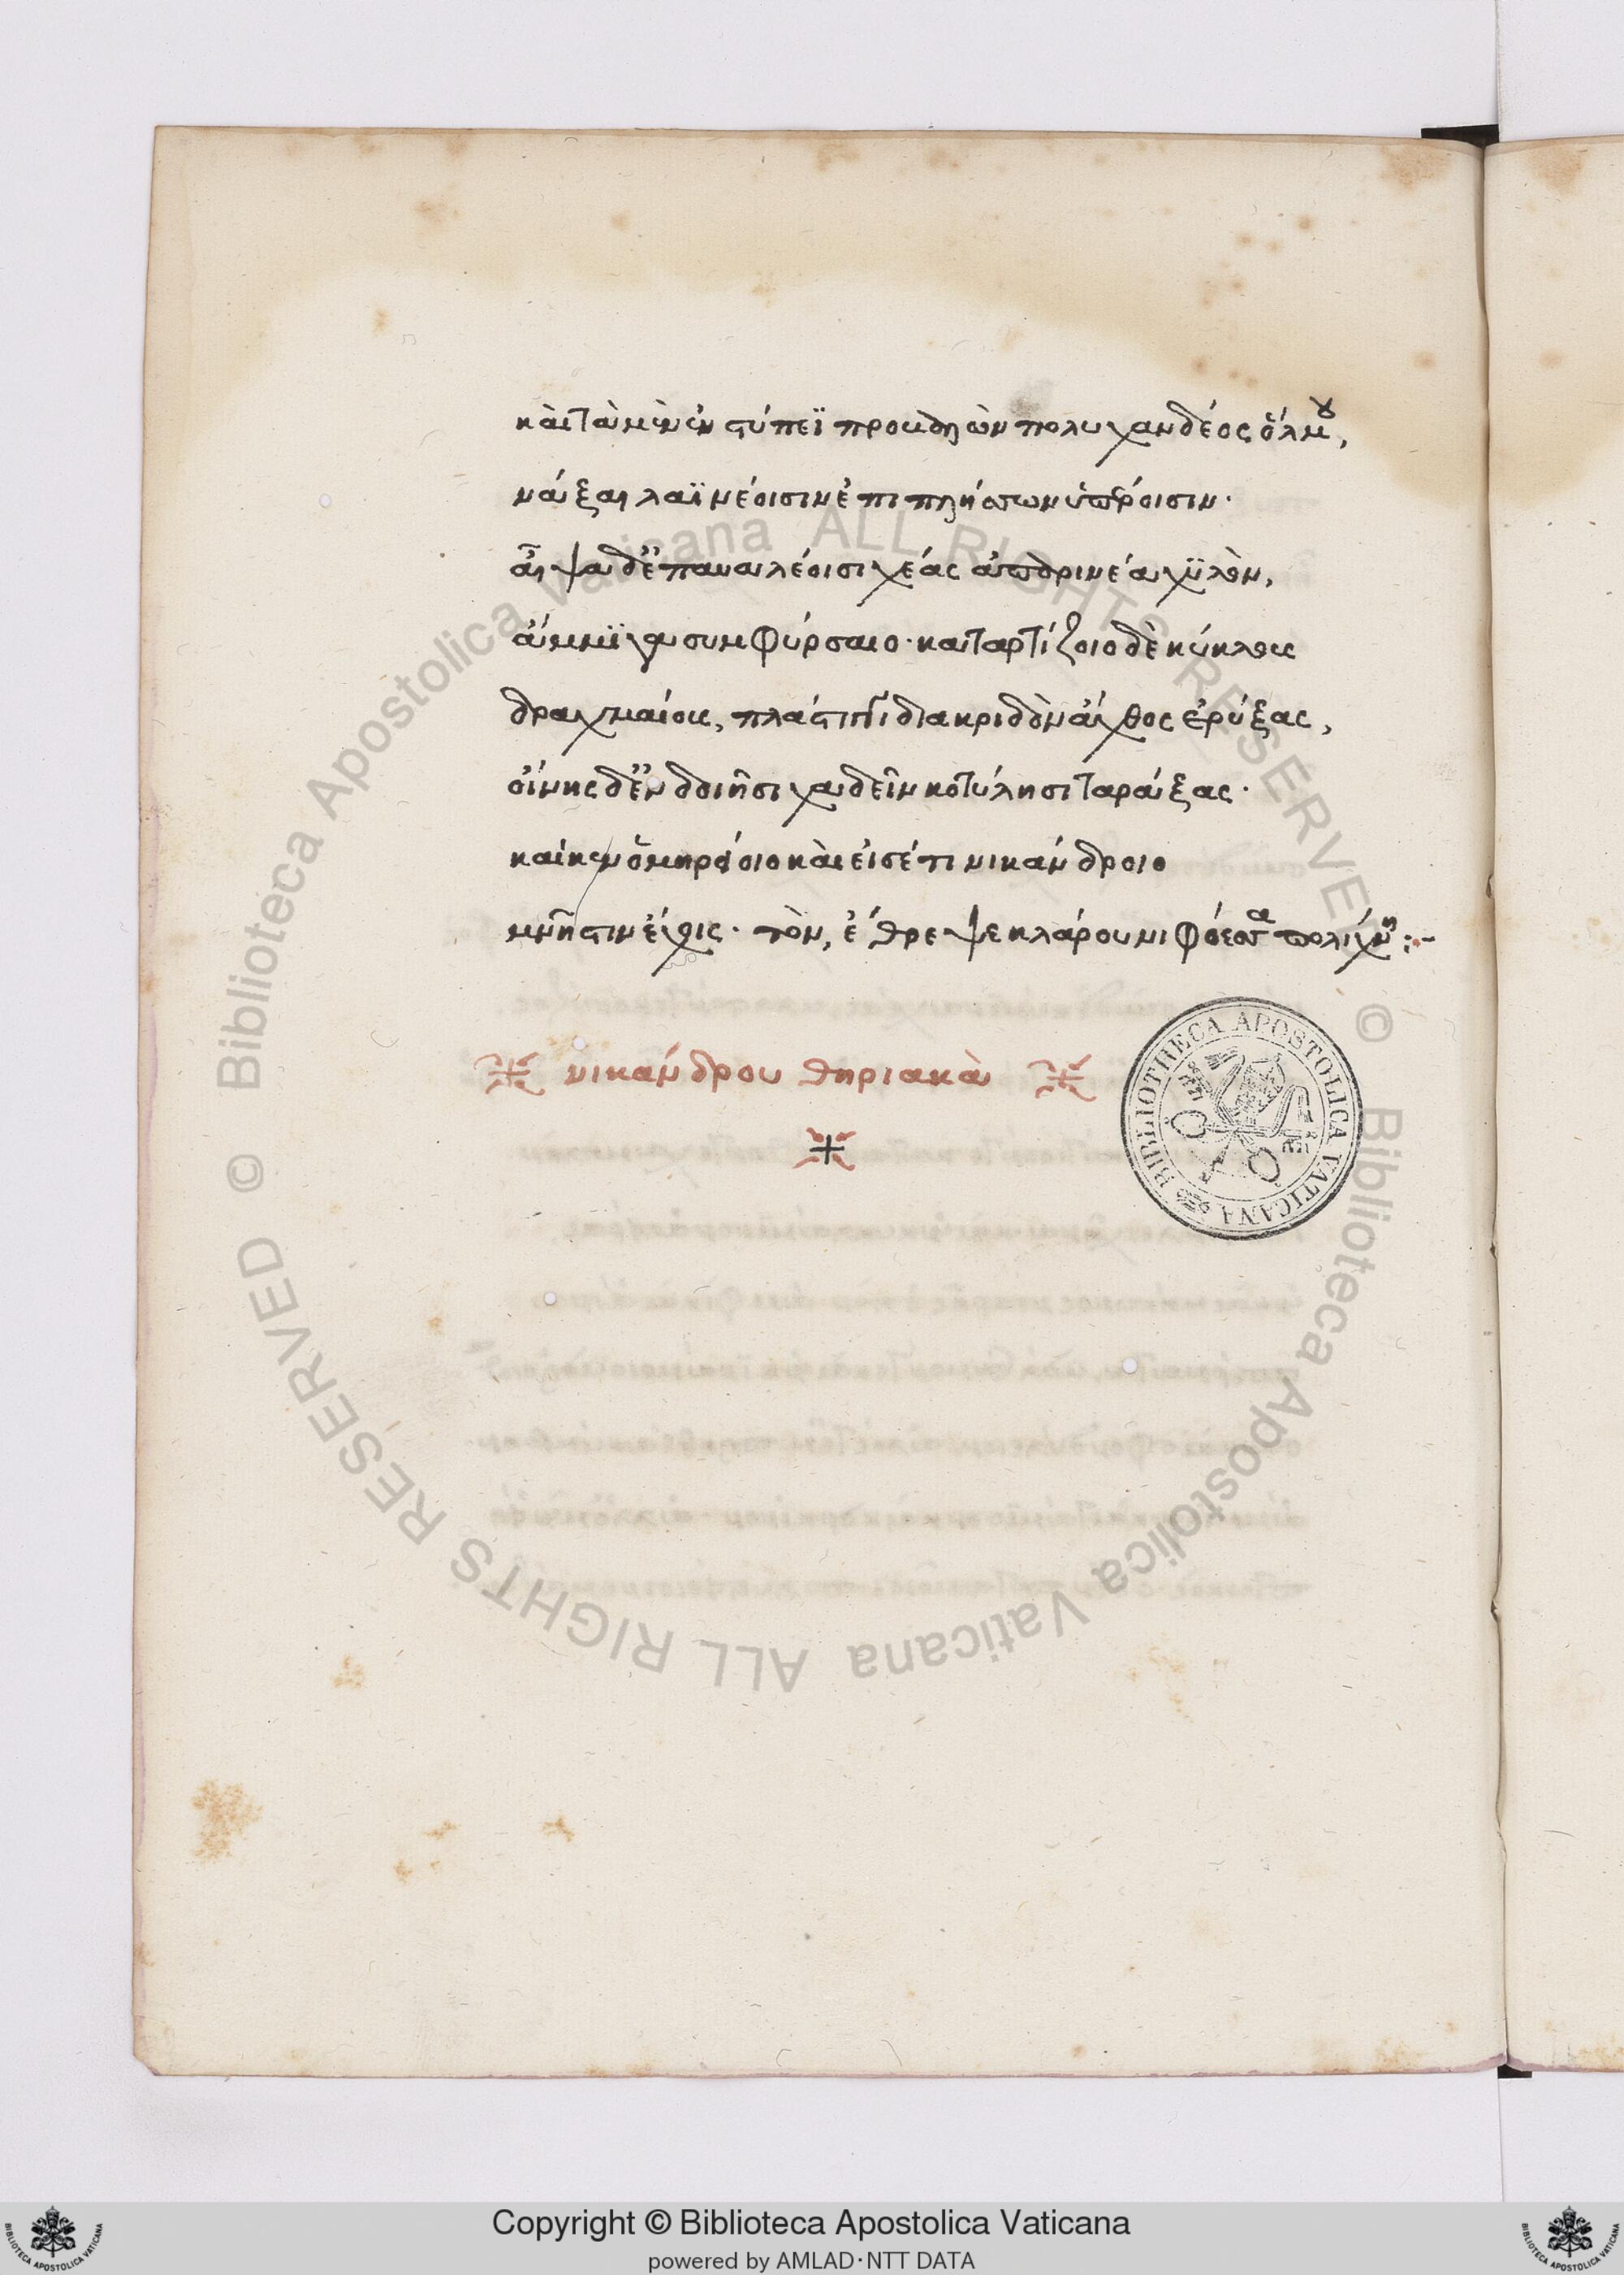 καὶ τὰ μὲν ἐν στύπεϊ προυθηὼν πολυχανδέος ὅλμου,
μάξαι λαϊνέοισιν ἐπιπλήσσων ὑπέροισιν·
αἶψα δ' ἐπ' αναλέοισι χέας ἀπὸ ρινέα χϋλὸν,
ἄμμϊγα συμφύρσαιο· καταρτίζοιο δὲ κύκλους
δραχμαίους, πλάστιγγι διακριδὸν ἄχθος ἐρύξας,
οἴνης δ' ἐν δοιῆσι χαδεῖν κοτύλησι ταράξας·
καί κεν ὁμηρείοιο καὶ εἰσέτι νικάνδροιο
μνῆστιν ἔχοις· τὸν, ἔθρεψε κλάρου νιφόεσσα πολίχνη :-
νικάνδρου θηριακὰ
BIBLIOTHECA APOSTOLICA VATICANA
© Biblioteca Apostolica Vaticana ALL RIGHTS RESERVED
© Biblioteca Apostolica Vaticana ALL RIGHTS RESERVED
Copyright © Biblioteca Apostolica Vaticana
powered by AMLAD·NTT DATA